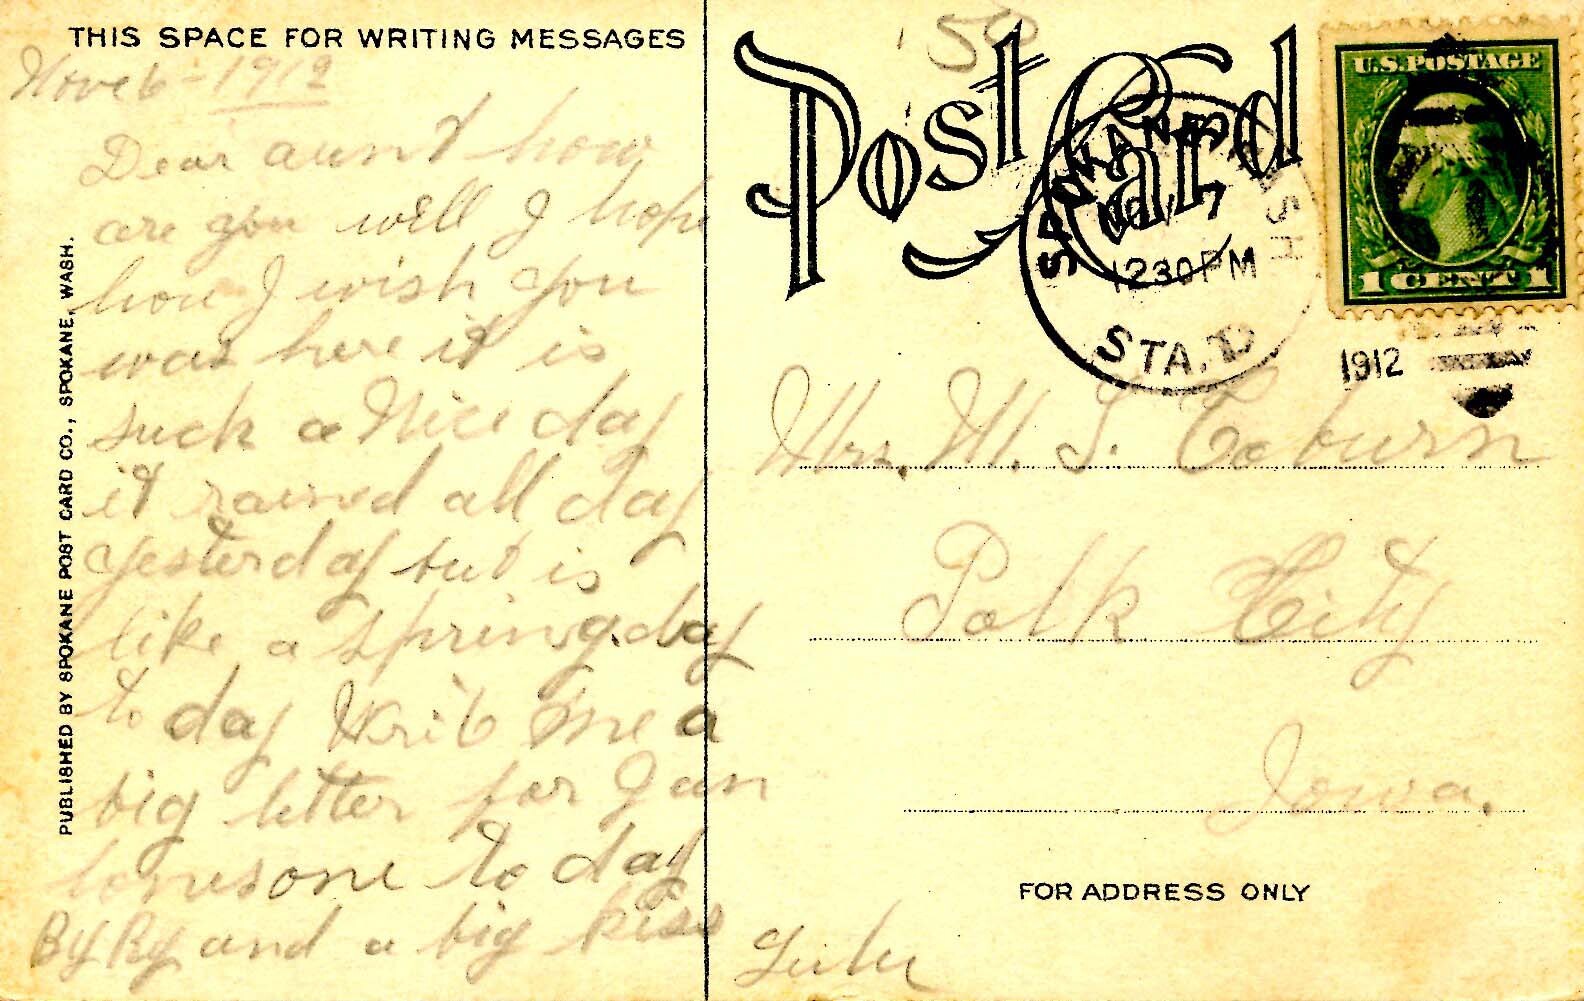 THIS SPACE FOR WRITING MESSAGES
Nove 6 - 1912
Dear aunt how
are you well I hope
how I wish you
was here it is
such a Nice day
it rained all day
yesterday but is
like a spring day
to day Write me a
big letter for I am
lonesome to day
By By and a big kiss
Lulu
PUBLISHED BY SPOKANE POST CARD CO., SPOKANE, WASH.
50
Post Card
SPOKANE, WASH
NOV 7
1230PM
STA. D
1912
U.S. POSTAGE
1 CENT 1
Mrs. M. S. Coburn
Polk City
Iowa.
FOR ADDRESS ONLY